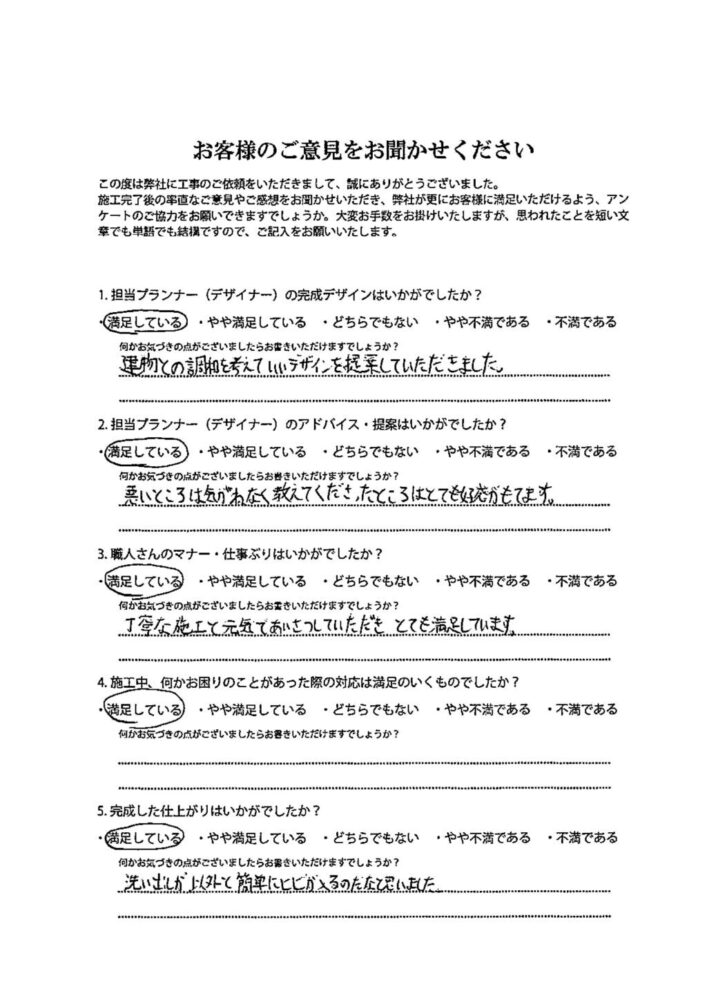 お客様のご意見をお聞かせください
この度は弊社に工事のご依頼をいただきまして、誠にありがとうございました。
施工完了後の率直なご意見やご感想をお聞かせいただき、弊社が更にお客様に満足いただけるよう、アン
ケートのご協力をお願いできますでしょうか。大変お手数をお掛けいたしますが、思われたことを短い文
章でも単語でも結構ですので、ご記入をお願いいたします。
1. 担当プランナー（デザイナー）の完成デザインはいかがでしたか？
・満足している ・やや満足している ・どちらでもない ・やや不満である ・不満である
何かお気づきの点がございましたらお書きいただけますでしょうか？
建物との調和を考えていいデザインを提案していただきました。
2. 担当プランナー（デザイナー）のアドバイス・提案はいかがでしたか？
・満足している ・やや満足している ・どちらでもない ・やや不満である ・不満である
何かお気づきの点がございましたらお書きいただけますでしょうか？
悪いところは気がねなく教えてくださったところはとても好感がもてます。
3. 職人さんのマナー・仕事ぶりはいかがでしたか？
・満足している ・やや満足している ・どちらでもない ・やや不満である ・不満である
何かお気づきの点がございましたらお書きいただけますでしょうか？
丁寧な施工と元気であいさつしていただき とても満足しています。
4. 施工中、何かお困りのことがあった際の対応は満足のいくものでしたか？
・満足している ・やや満足している ・どちらでもない ・やや不満である ・不満である
何かお気づきの点がございましたらお書きいただけますでしょうか？
5. 完成した仕上がりはいかがでしたか？
・満足している ・やや満足している ・どちらでもない ・やや不満である ・不満である
何かお気づきの点がございましたらお書きいただけますでしょうか？
洗い出しが 以外と簡単にヒビが入るのだなと思いました